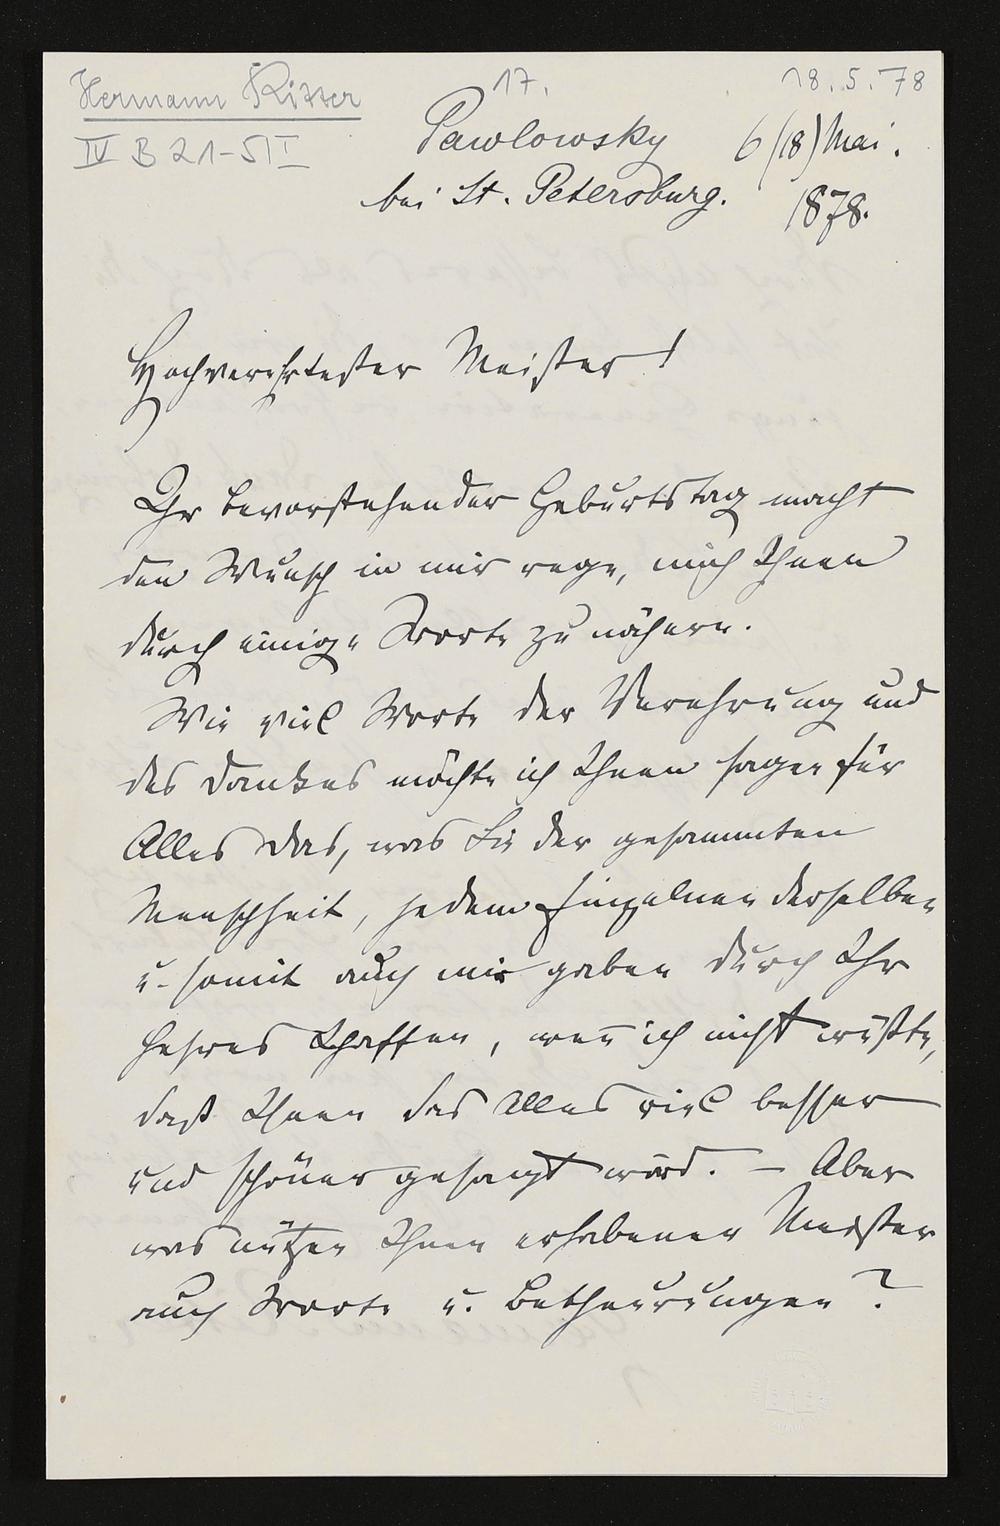 Hermann Ritter
17.
18.5.78
IV B 21-5I
Pawlowsky 6/(18) Mai.
bei St. Petersburg. 1878.
Hochverehrtester Meister!
Ihr bevorstehender Geburtstag macht
den Wunsch in mir rege, mich Ihnen
durch einige Worte zu nähern.
Wie viel Worte der Verehrung und
des Dankes möchte ich Ihnen sagen für
Alles Das, was Sie der gesammten
Menschheit, jedem Einzelnen derselben
u. somit auch mir gaben durch Ihr
hehres Schaffen, wen̄ ich nicht wüßte,
daß Ihnen das Alles viel besser
und schöner gesagt wird. – Aber
was nützen Ihnen erhabener Meister
auch Worte u. Betheurungen?